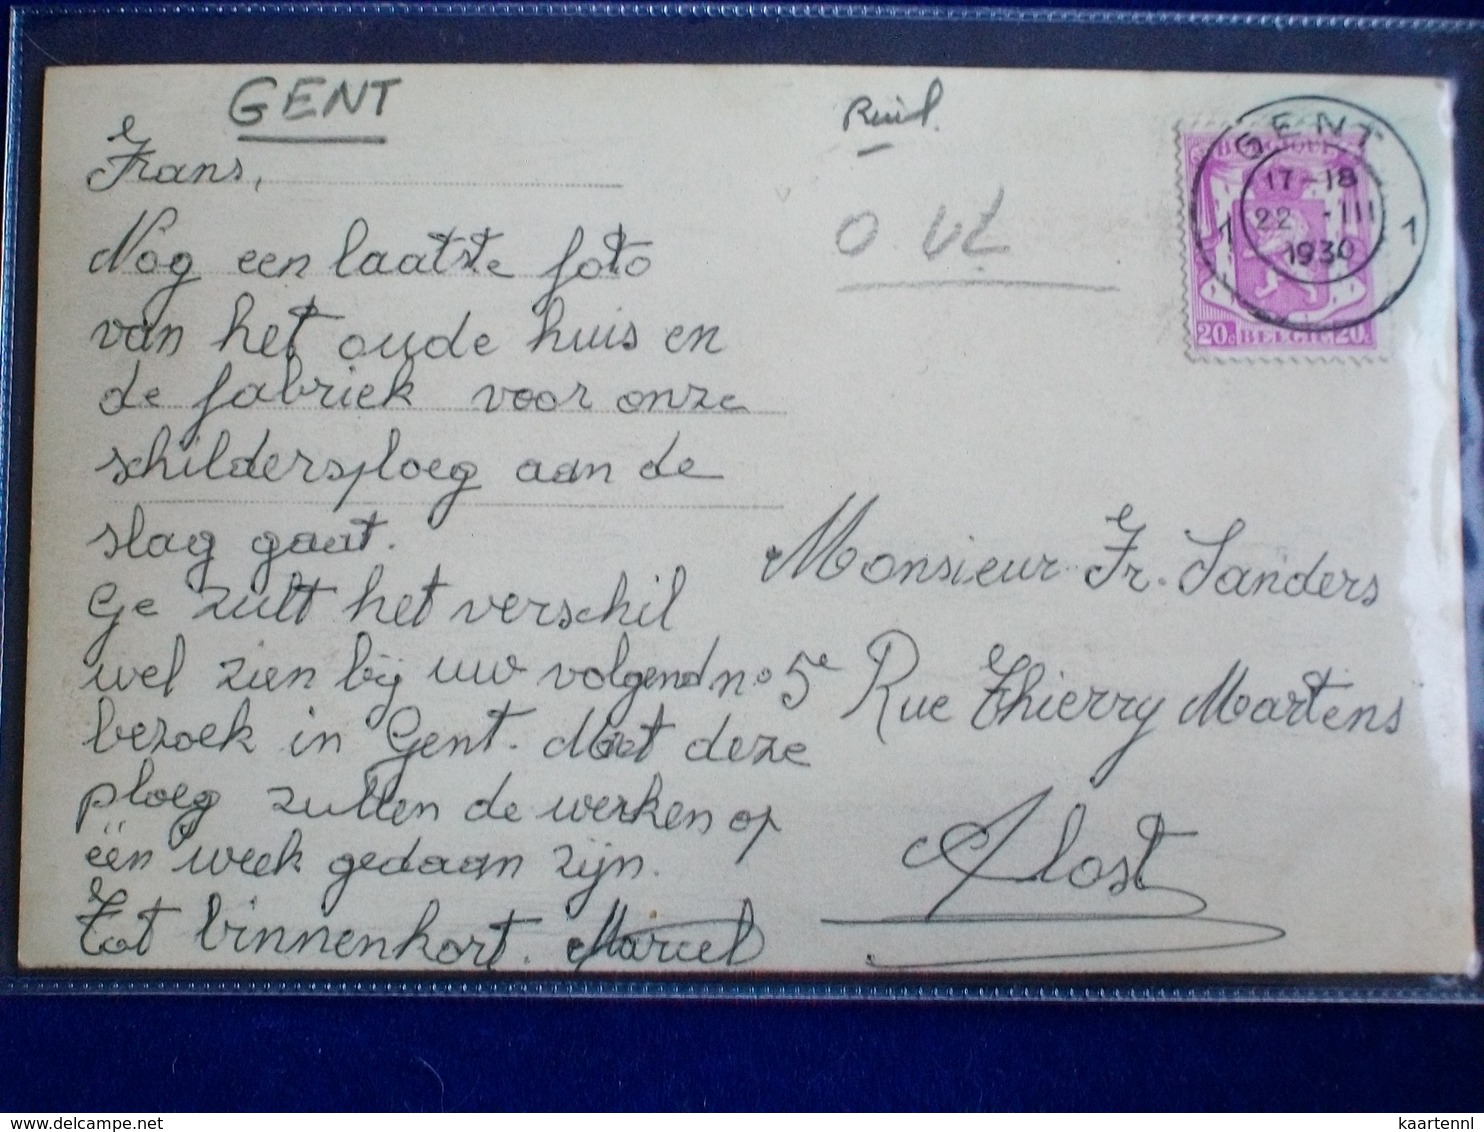 GENT
Frans,
Nog een laatste foto
van het oude huis en
de fabriek voor onze
schildersploeg aan de
slag gaat.
Ge zult het verschil
wel zien bij uw volgend
bezoek in Gent. Met deze
ploeg zullen de werken op
één week gedaan zijn.
Tot binnenkort. Marcel
Ruil.
O VL
BELGIQUE
20c BELGIE 20c
GENT
17-18
22 -III
1930
1 1
Monsieur Fr. Sanders
no 5e Rue Thierry Martens
Alost
Delcampe.net
kaartennl